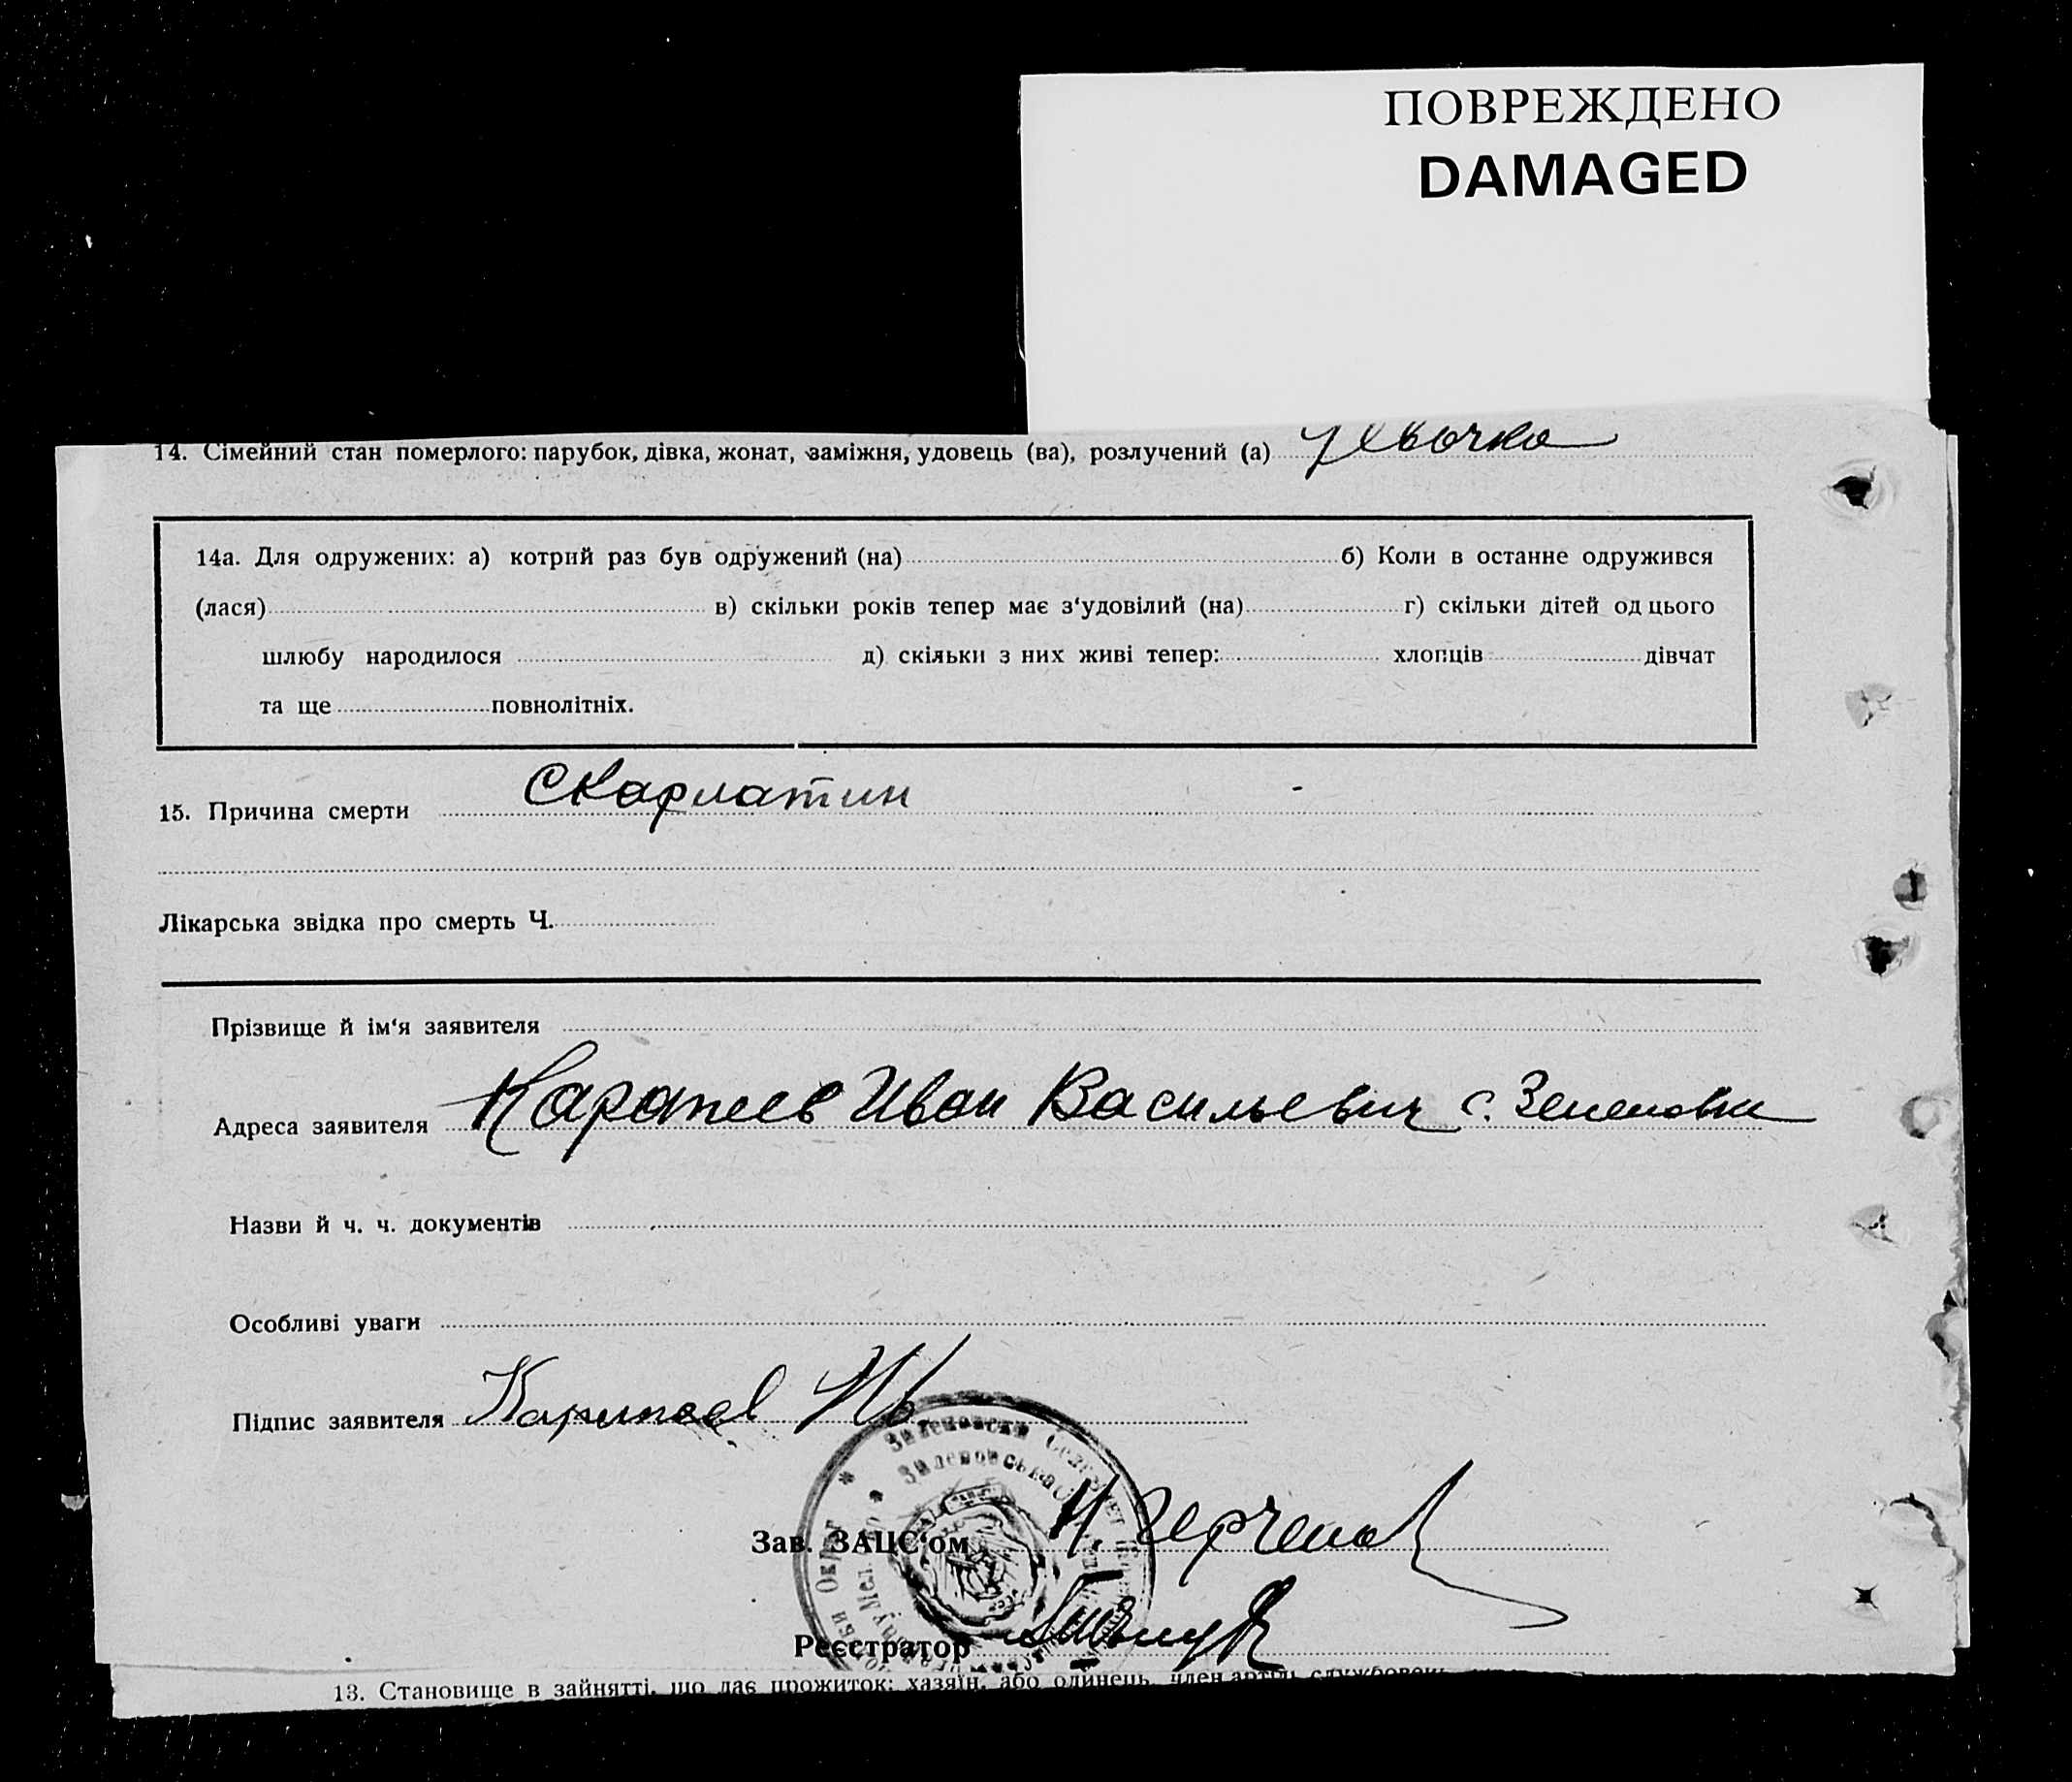 ПОВРЕЖДЕНО
DAMAGED
14. Сімейний стан померлого: парубок, дівка, жонат, заміжня, удовець (ва), розлучений (а) девочка
14а. Для одружених: а) котрий раз був одружений (на) б) Коли в останне одружився
(лася) в) скільки років тепер має з‘удовілий (на) г) скільки дітей од цього
шлюбу народилося д) скільки з них живі тепер: хлопців дівчат
та ще повнолітніх.
15. Причина смерти Скарлатин
Лікарська звідка про смерть Ч.
Прізвище й ім‘я заявителя
Адреса заявителя Иван Васильевич с.
Назви й ч. ч. документів
Особливі уваги
Підпис заявителя
Зав. ЗАЦС‘ом
Реєстратор
13. Становище в зайнятті, що дає прожиток: хазяїн, або одинець, член артілі,